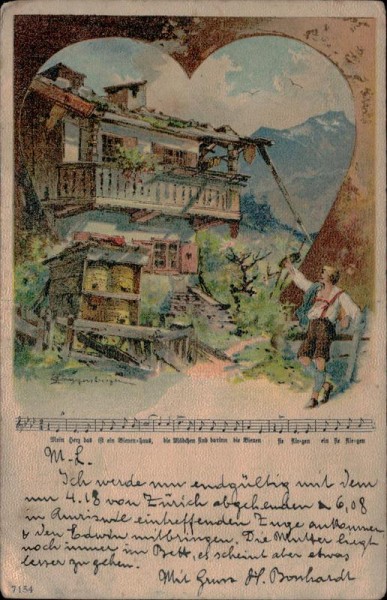 Mein Herz das ist ein Bienen-haus, die Mädchen sind darinn die Bienen Sie flie-gen ein Sie flie-gen
M. L.
Ich werde nun endgültig mit dem
um 4.18 von Zürich abgehenden & 6,08
in Amriswil eintreffenden Zuge ankommen
& den Edwin mitbringen. Die Mutter liegt
noch immer im Bett, es scheint aber etwas
besser zu gehen.
Mit Gruss
7154